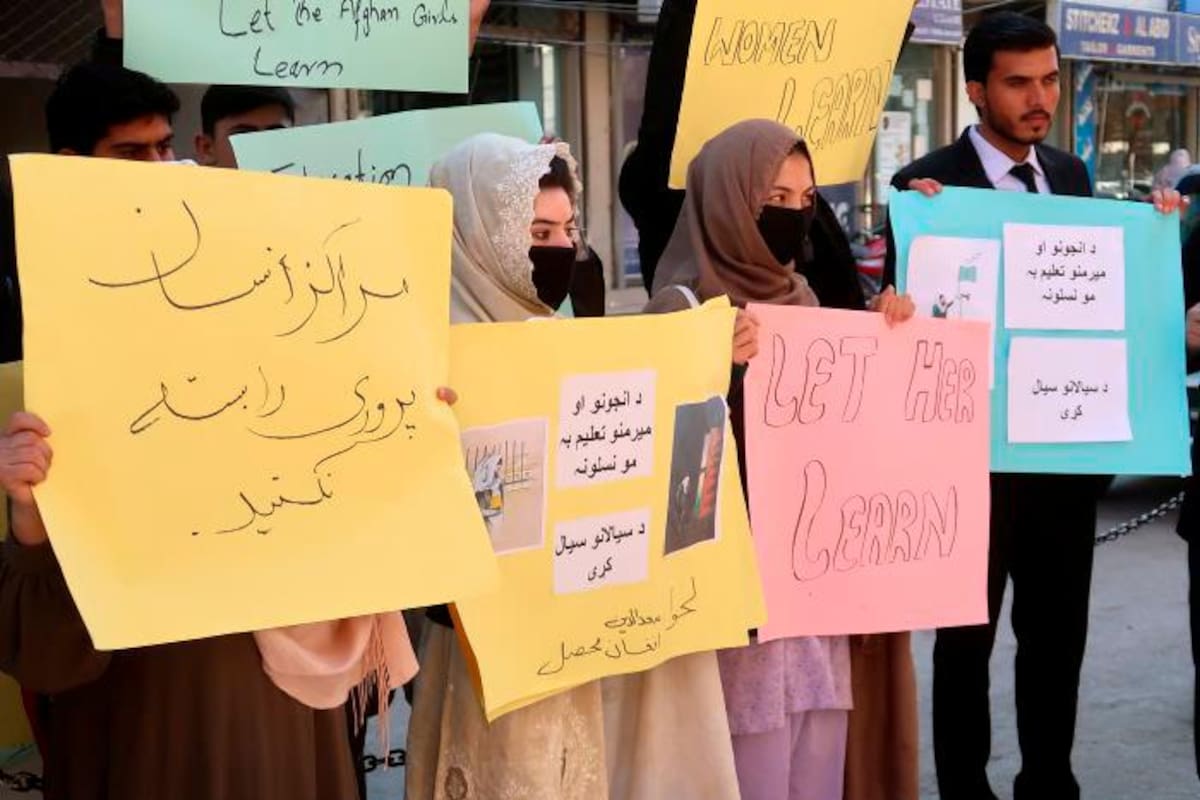 Let the Afghan Girls
Learn
Education
WOMEN
LEARN
STITCHERZ & AL ABID
TAILOR & GARMENTS
مراکز انسان
پروری را بسته
نکنید .
د انجونو او
میرمنو تعلیم به
مو نسلونه
د سیالانو سیال
کړی
افغان محصل
LET HER
LEARN
د انجونو او
میرمنو تعلیم به
مو نسلونه
د سیالانو سیال
کړی